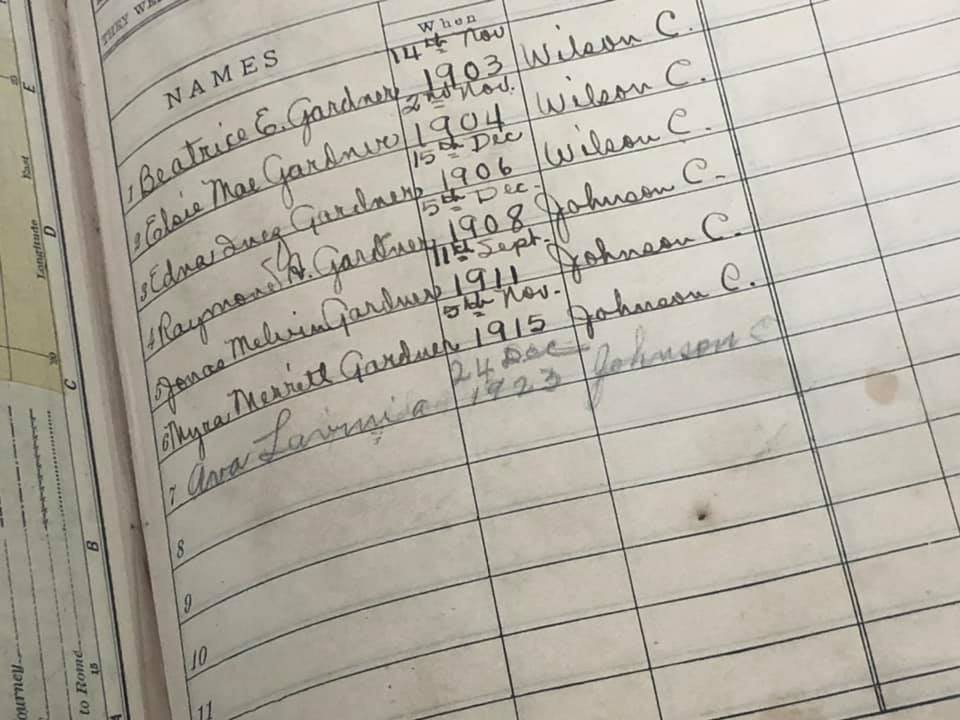 THEY WE
NAMES
When
14th Nov
1 Beatrice E. Gardner 1903 Wilson C.
2nd Nov.
2 Elsie Mae Gardner 1904 Wilson C.
15th Dec
3 Edna Inez Gardner 1906 Wilson C.
5th Dec.
4 Raymond A. Gardner 1908 Johnson C.
11th Sept.
5 Jonas Melvin Gardner 1911 Johnson C.
5th Nov.
6 Myra Merritt Gardner 1915 Johnson C.
24 Dec
7 Ava Lavinia 1923 Johnson C
8
9
10
11
E
East
D
Longitude
30
C
B
15
ourney
to Rome